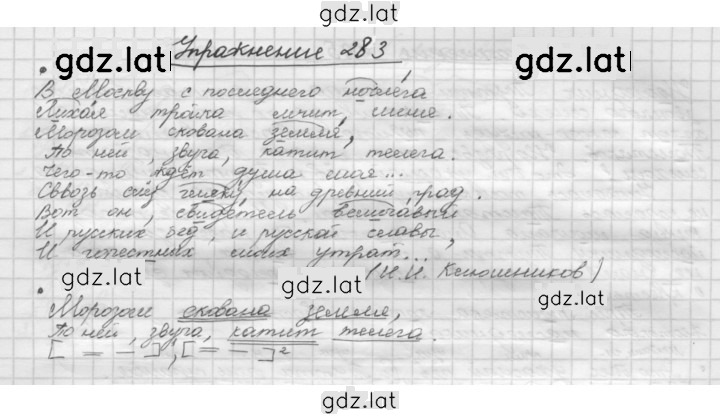 gdz.lat
Упражнение 283
gdz.lat
gdz.lat
В Москву с последнего ночлега
Лихая тройка мчит меня.
Морозом скована земля,
По ней, звуча, катит телега.
Чего-то ждёт душа моя...
Сквозь снег гляжу на древний град.
Вот он, свидетель величавый
И русских бед, и русской славы,
И горестных моих утрат...
(И.П. Клюшников)
gdz.lat
gdz.lat
gdz.lat
Морозом скована земля,
По ней, звуча, катит телега.
[ = − ], [ = − ]²
gdz.lat